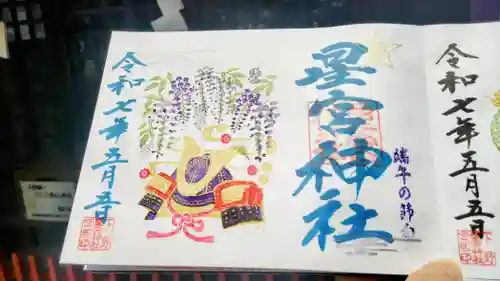 令和七年五月五日
端午の節句
星宮神社
令和七年五月五日